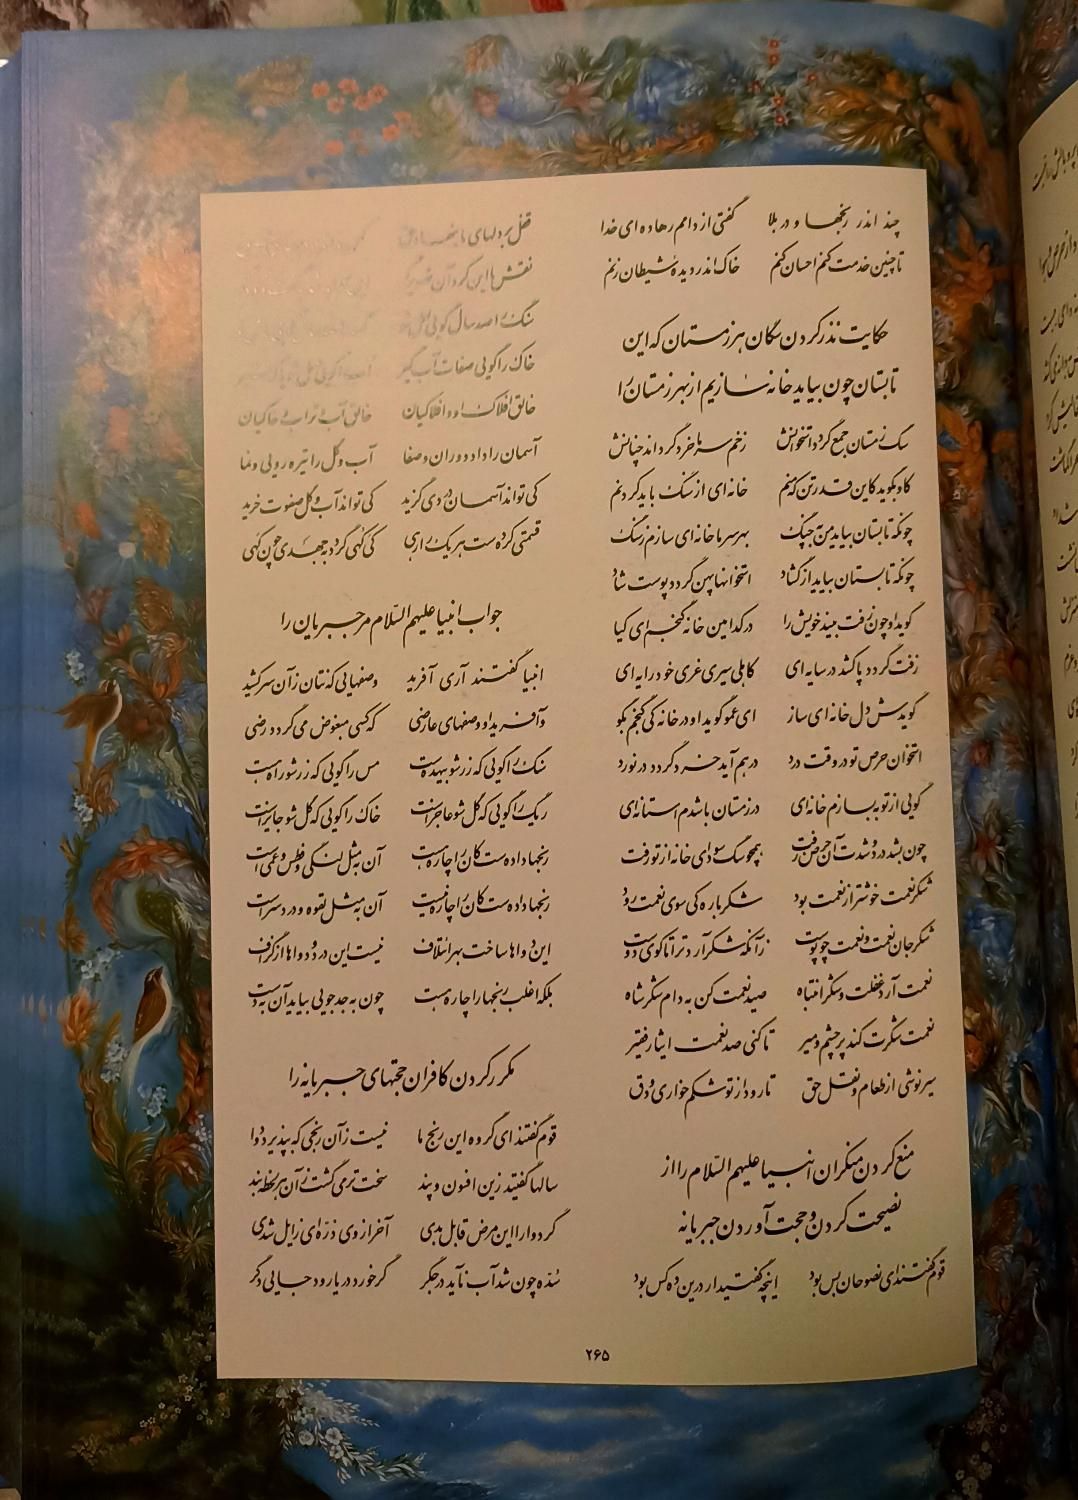 چند اندر رنجها و در بلا گفتی از دامم رها ده ای خدا
تا چنین خدمت کنم احسان کنم خاک اندر دیده شیطان زنم
حکایت نذر کردن سگان هر زمستان که این
تابستان چون بیاید خانه سازیم از بهر زمستان را
سگ زمستان جمع گردد استخوانش زخم سرما خرد گرداند چنانش
کاو بگوید کاین قدر تن که منم خانه ای از سنگ باید کردنم
چونکه تابستان بیاید من به چنگ بهر سرما خانه ای سازم ز سنگ
چونکه تابستان بیاید از گشاد استخوانها پهن گردد پوست شاد
گوید او چون زفت بیند خویش را در کدامین خانه گنجم ای کیا
زفت گردد پا کشد در سایه ای کاهلی سیری غری خود رایه ای
گویدش دل خانه ای ساز ای عمو گوید او در خانه کی گنجم بگو
استخوان حرص تو در وقت درد درهم آید خرد گردد در نورد
گویی از توبه بسازم خانه ای در زمستان باشدم استانه ای
چون بشد درد و شدت آن حرص زفت همچو سگ سودای خانه از تو رفت
شکر نعمت خوشتر از نعمت بود شکر باره کی سوی نعمت رود
شکر جان نعمت و نعمت چو پوست زآنکه شکر آرد ترا تا کوی دوست
نعمت آرد غفلت و شکر انتباه صید نعمت کن به دام شکر شاه
نعمت شکرت کند پر چشم و میر تا کنی صد نعمت ایثار فقیر
سیر نوشی از طعام و نقل حق تا رود از تو شکم خواری و دق
منع کردن منکران انبیا علیهم السّلام را از
نصیحت کردن و حجت آوردن جبریانه
قوم گفتند ای نصوحان بس بود اینچه گفتید ار درین ده کس بود
قفل بر دلهای ما بنهاد حق
نقش ما این کرد آن
سنگ را صد سال گویی لعل شو
خاک را گویی صفات آب گیر
خالق افلاک او و افلاکیان خالق آب و تراب و خاکیان
آسمان را داد دوران و صفا آب و گل را تیره رویی و نما
کی تواند آسمان دردی گزید کی تواند آب و گل صفوت خرید
قسمتی کرده ست هر یک را رهی کی کهی گردد به جهدی چون کهی
جواب انبیا علیهم السّلام مر جبریان را
انبیا گفتند آری آفرید وصفهایی که نتان زآن سر کشید
و آفرید او وصفهای عارضی که کسی مبغوض می گردد رضی
سنگ را گویی که زر شو بیهده ست مس را گویی که زر شو راه هست
ریگ را گویی که گل شو عاجز است خاک را گویی که گل شو جایز است
رنجها داده ست کان را چاره هست آن به مثل لنگی و فطس و عمی است
رنجها داده ست کان را چاره نیست آن به مثل لقوه و درد سر است
این دواها ساخت بهر ائتلاف نیست این درد و دواها از گزاف
بلکه اغلب رنجها را چاره هست چون به جد جویی بیاید آن به دست
مکرر کردن کافران حجتهای جبریانه را
قوم گفتند ای گروه این رنج ما نیست زآن رنجی که بپذیرد دوا
سالها گفتید زین افسون و پند سخت تر می گشت زآن هر لحظه بند
گر دوا را این مرض قابل بدی آخر از وی ذرّه ای زایل شدی
سُدّه چون شد آب ناید در جگر گر خورد دریا رود جایی دگر
۲۶۵